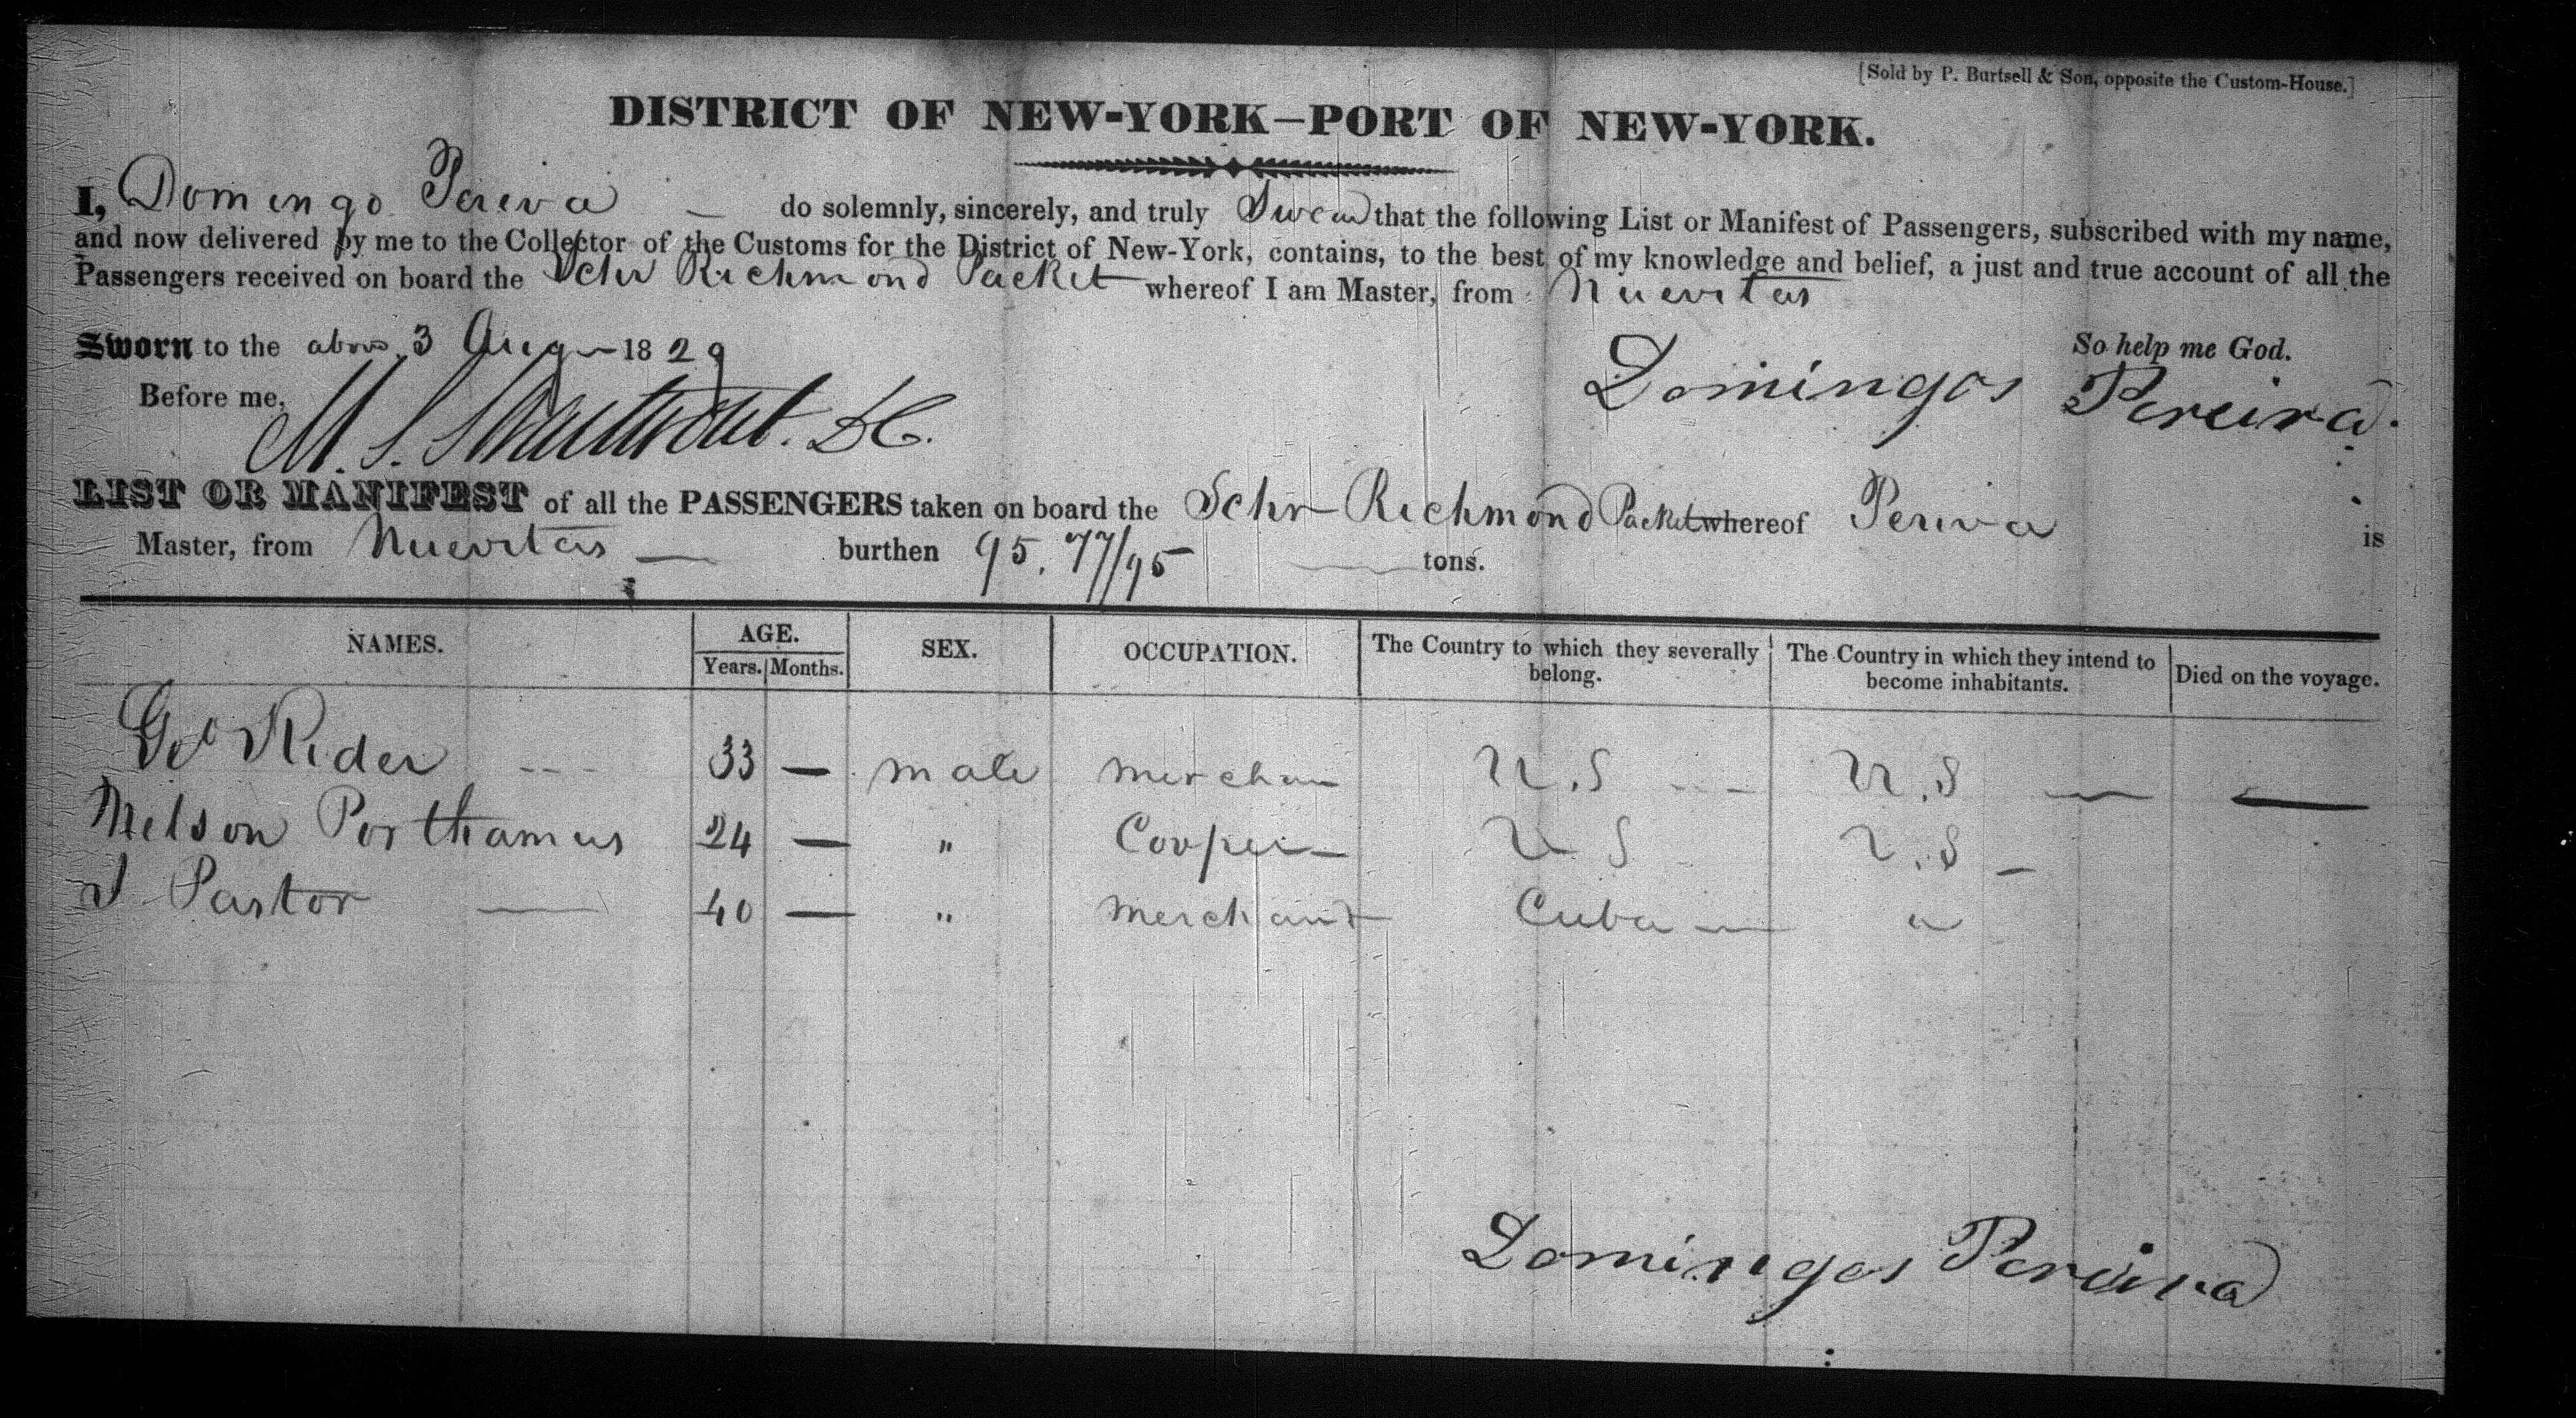 [Sold by P. Burtsell & Son, opposite the Custom-House.]
DISTRICT OF NEW-YORK—PORT OF NEW-YORK.
I, Domingo Periva — do solemnly, sincerely, and truly Swear that the following List or Manifest of Passengers, subscribed with my name,
and now delivered by me to the Collector of the Customs for the District of New-York, contains, to the best of my knowledge and belief, a just and true account of all the
Passengers received on board the Schr Richmond Packet whereof I am Master, from Nuevitas
So help me God.
Sworn to the above 3 Aug 1829
Domingos Pereira.
Before me,
M. S. D C.
LIST OR MANIFEST of all the PASSENGERS taken on board the Schr Richmond Packet whereof Periva is
Master, from Nuevitas — burthen 95. 77/95 tons.
NAMES. AGE. Years. Months. SEX. OCCUPATION. The Country to which they severally belong. The Country in which they intend to become inhabitants. Died on the voyage.
Geo Rider 33 — male merchan U.S U.S — —
Nelson Porthamus 24 — " Cooper U S U.S —
J Pastor — 40 — " merchant Cuba — "
Domingos Pereira